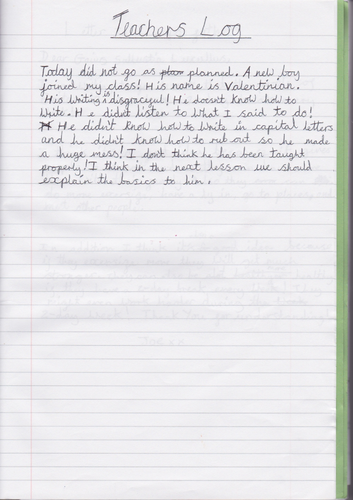 Teachers Log
Today did not go as plan planned. A new boy
joined my class! His name is Valentinian.
His writing is disgraceful! He doesn't know how to
write. He didn't listen to what I said to do!
He didn't know how to write in capital letters
and he didn't know how to rub out so he made
a huge mess! I don't think he has been taught
properly! I think in the next lesson we should
explain the basics to him.